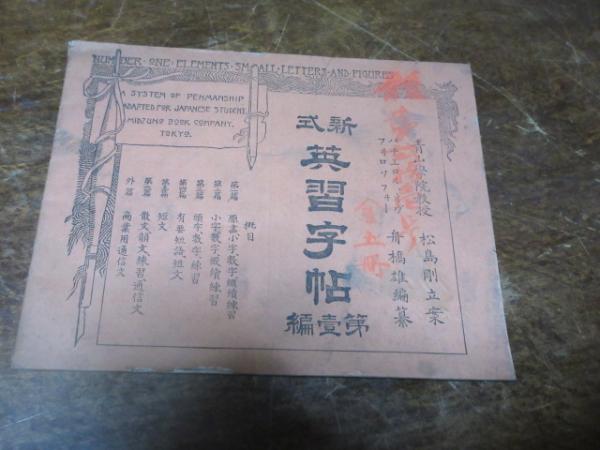 NUMBER·ONE·ELEMENTS·SMALL·LETTERS·AND·FIGURES
A SYSTEM OF PENMANSHIP
ADAPTED FOR JAPANESE STUDENT
MIDZUNO BOOK COMPANY,
TOKYO.
青山學院教授 松島剛立案
舟橋雄編纂
全五冊
新式
英習字帖
第壹編
批目
第一編 原畫小字數字繼續練習
第二編 小字數字繼續練習
第三編 頭字數字練習
第四編 有要短語短文
第五編 短文
第六編 散文韻文練習通信文
外篇 商業用通信文